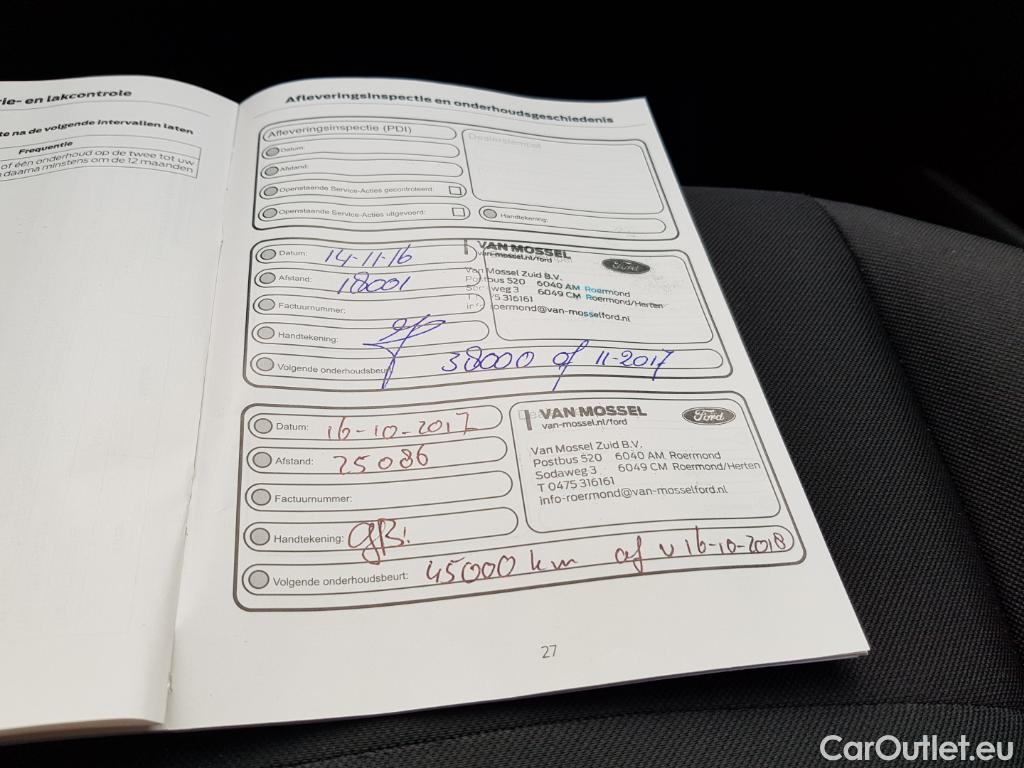 ie- en lakcontrole
te na de volgende intervallen laten
Frequentie
of één onderhoud op de twee tot uw
daarna minstens om de 12 maanden
Afleveringsinspectie en onderhoudsgeschiedenis
Afleveringsinspectie (PDI)
Dealerstempel
Datum:
Afstand:
Openstaande Service-Acties gecontroleerd:
Openstaande Service-Acties uitgevoerd:
Handtekening:
Datum: 14-11-16
Afstand: 18001
Factuurnummer:
Handtekening:
Volgende onderhoudsbeurt 38000 of 11-2017
VAN MOSSEL
van-mossel.nl/ford
Ford
Van Mossel Zuid B.V.
Postbus 520 6040 AM Roermond
Sodaweg 3 6049 CM Roermond/Herten
T 75 316161
info roermond@van-mosselford.nl
Datum: 16-10-2017
Afstand: 25086
Factuurnummer:
Handtekening: GB!
Volgende onderhoudsbeurt: 45000 km of v 16-10-2018
VAN MOSSEL
van-mossel.nl/ford
Ford
Van Mossel Zuid B.V.
Postbus 520 6040 AM Roermond
Sodaweg 3 6049 CM Roermond/Herten
T 0475 316161
info-roermond@van-mosselford.nl
27
CarOutlet.eu